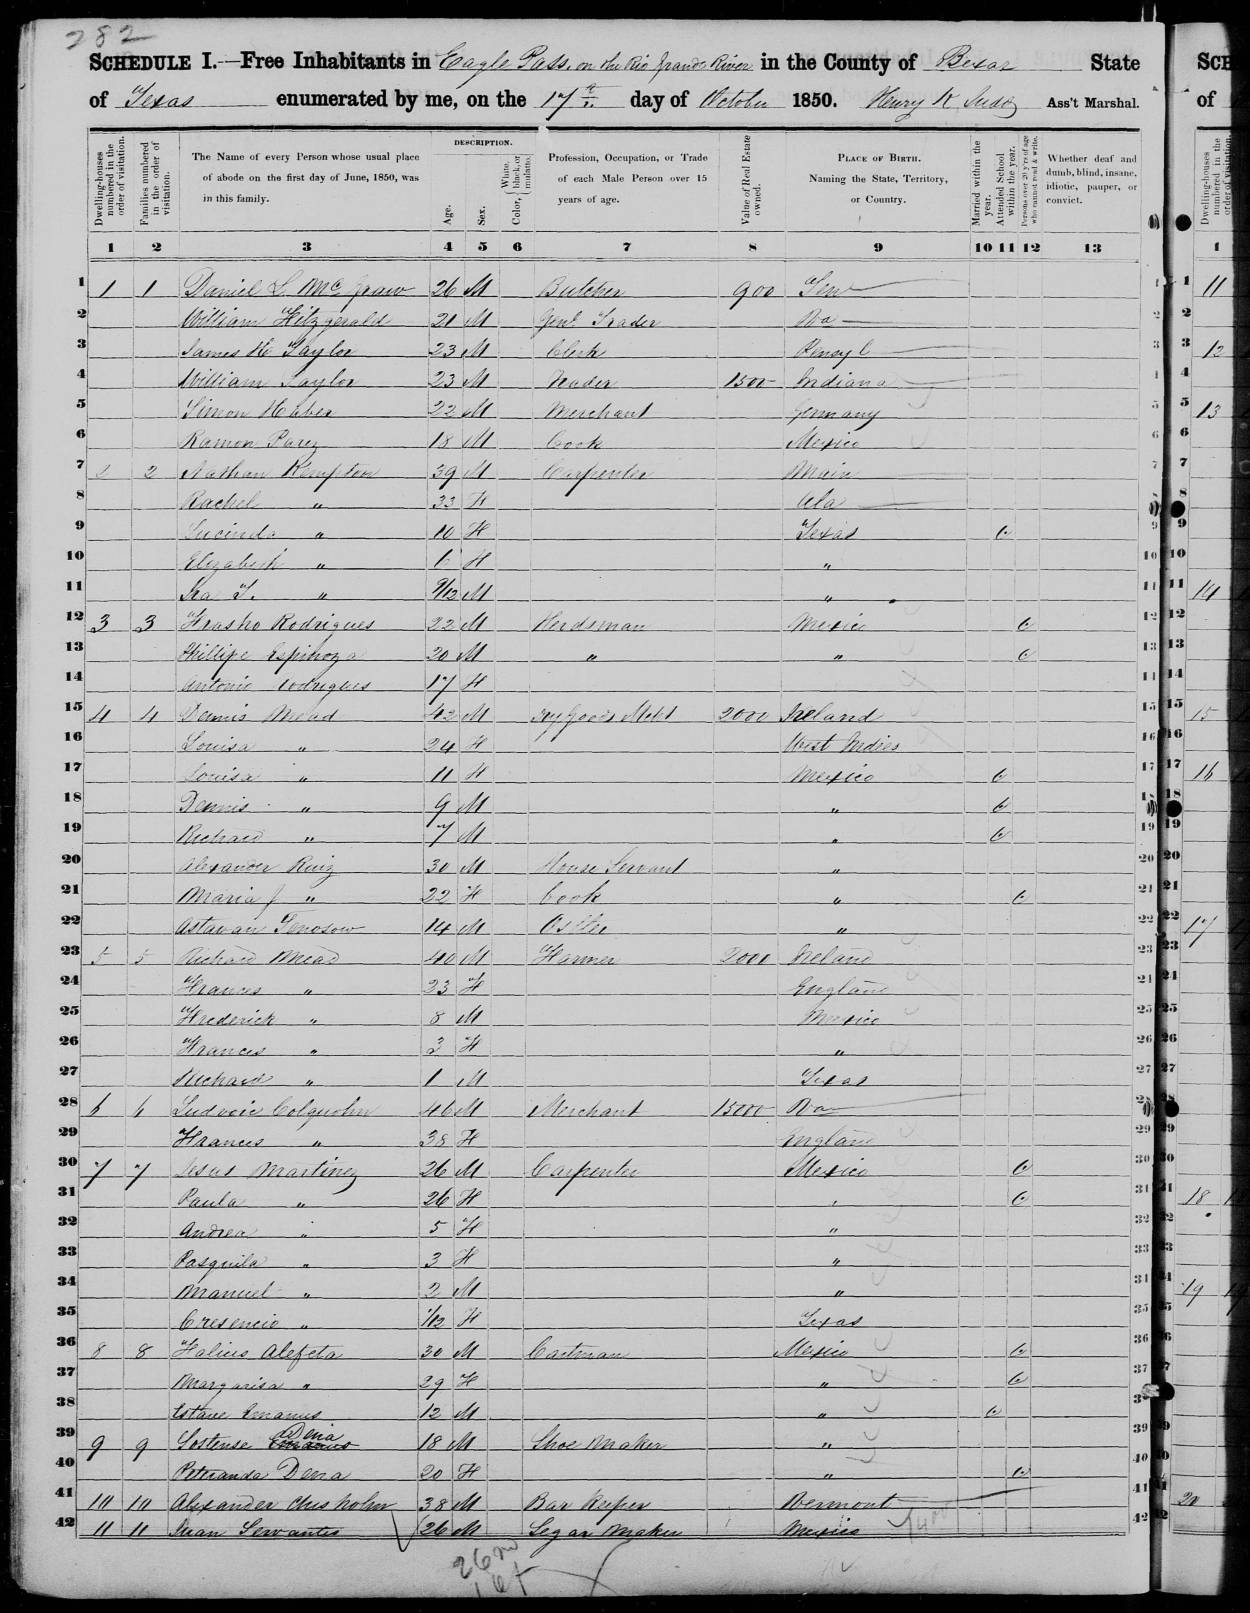 282
SCHEDULE I.—Free Inhabitants in Eagle Pass, on the Rio Grande River in the County of Bexar State
of Texas enumerated by me, on the 17th day of October 1850. Henry K Ass't Marshal.
Dwelling-houses numbered in the order of visitation.
Families numbered in the order of visitation.
The Name of every Person whose usual place of abode on the first day of June, 1850, was in this family.
DESCRIPTION.
Age.
Sex.
Color, { White, black, or mulatto.
Profession, Occupation, or Trade of each Male Person over 15 years of age.
Value of Real Estate owned.
PLACE OF BIRTH. Naming the State, Territory, or Country.
Married within the year.
Attended School within the year.
Persons over 20 y'rs of age who cannot read & write.
Whether deaf and dumb, blind, insane, idiotic, pauper, or convict.
1 2 3 4 5 6 7 8 9 10 11 12 13
1 1 1 Daniel L McGraw 26 M Butcher 900 Ten 1
2 William Fitzgerald 21 M Genl Trader Va 2
3 James H Taylor 23 M Clerk Pensyl 3
4 William Taylor 23 M 1500 Indiana 4
5 Simon Haber 22 M Merchant Germany 5
6 Ramon Parez 18 M Cook Mexico 6
7 2 2 Nathan Kempton 39 M Carpenter Main 7
8 Rachel " 33 F Ala 8
9 Lucinda " 10 F Texas 9
10 Elizabeth " 6 F " 10
11 Ira T. " 9/12 M " 11
12 3 3 Rodrigues 22 M Herdsman Mexico 12
13 Phillipe Espinoza 20 M " " 13
14 Antonio Rodrigues 17 F
15 4 4 Dennis Mead 42 M Dry Goods Mcht 2000 Ireland 15
16 Louisa " 24 F West Indies 16
17 Louisa " 11 F Mexico 17
18 Dennis " 9 M " 18
19 Richard " 7 M " 19
20 Alexander Ruiz 30 M House Servant " 20
21 Maria J " 22 F Cook " 21
22 Astavan 14 M Ostler " 22
23 5 5 Richard Mead 40 M Farmer 2000 Ireland 23
24 Frances " 23 F England 24
25 Frederick " 8 M Mexico 25
26 Frances " 3 F " 26
27 Richard " 1 M Texas 27
28 6 6 Ludovic Colquohn 46 M Merchant 15000 Va 28
29 Frances " 38 F England 29
30 7 7 Jesus Martinez 26 M Carpenter Mexico 30
31 Paula " 26 F " 31
32 Andrea " 5 F " 32
33 Pasquila " 3 F " 33
34 Manuel " 2 M " 34
35 Cresencio " 1/12 F Texas 35
36 8 8 Alefeta 30 M Cartman Mexico 36
37 Margarisa " 29 F " 37
38 Emanus 12 M " 38
39 9 9 Sostense Dena 18 M Shoe Maker " 39
40 Dena 20 F " 40
41 10 10 Alexander Chisholm 38 M Bar Keeper Vermont 41
42 11 11 Juan Servantes 26 M Segar Maker Mexico 42
26 m
16 f